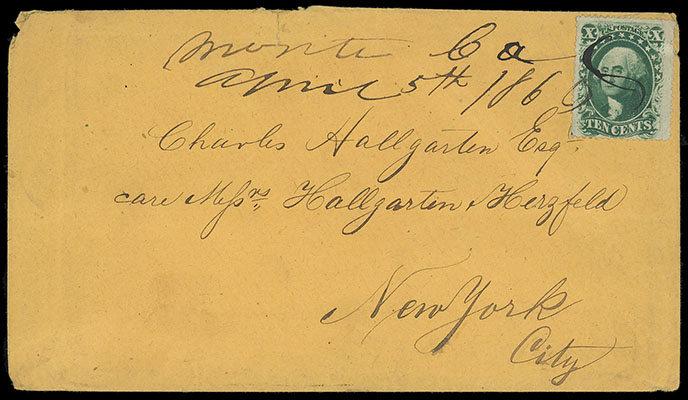 Monte Ca
April 5th 1860
X U.S. POSTAGE X
TEN CENTS
Charles Hallgarten Esqr
care Messrs. Hallgarten & Herzfeld
New York
City